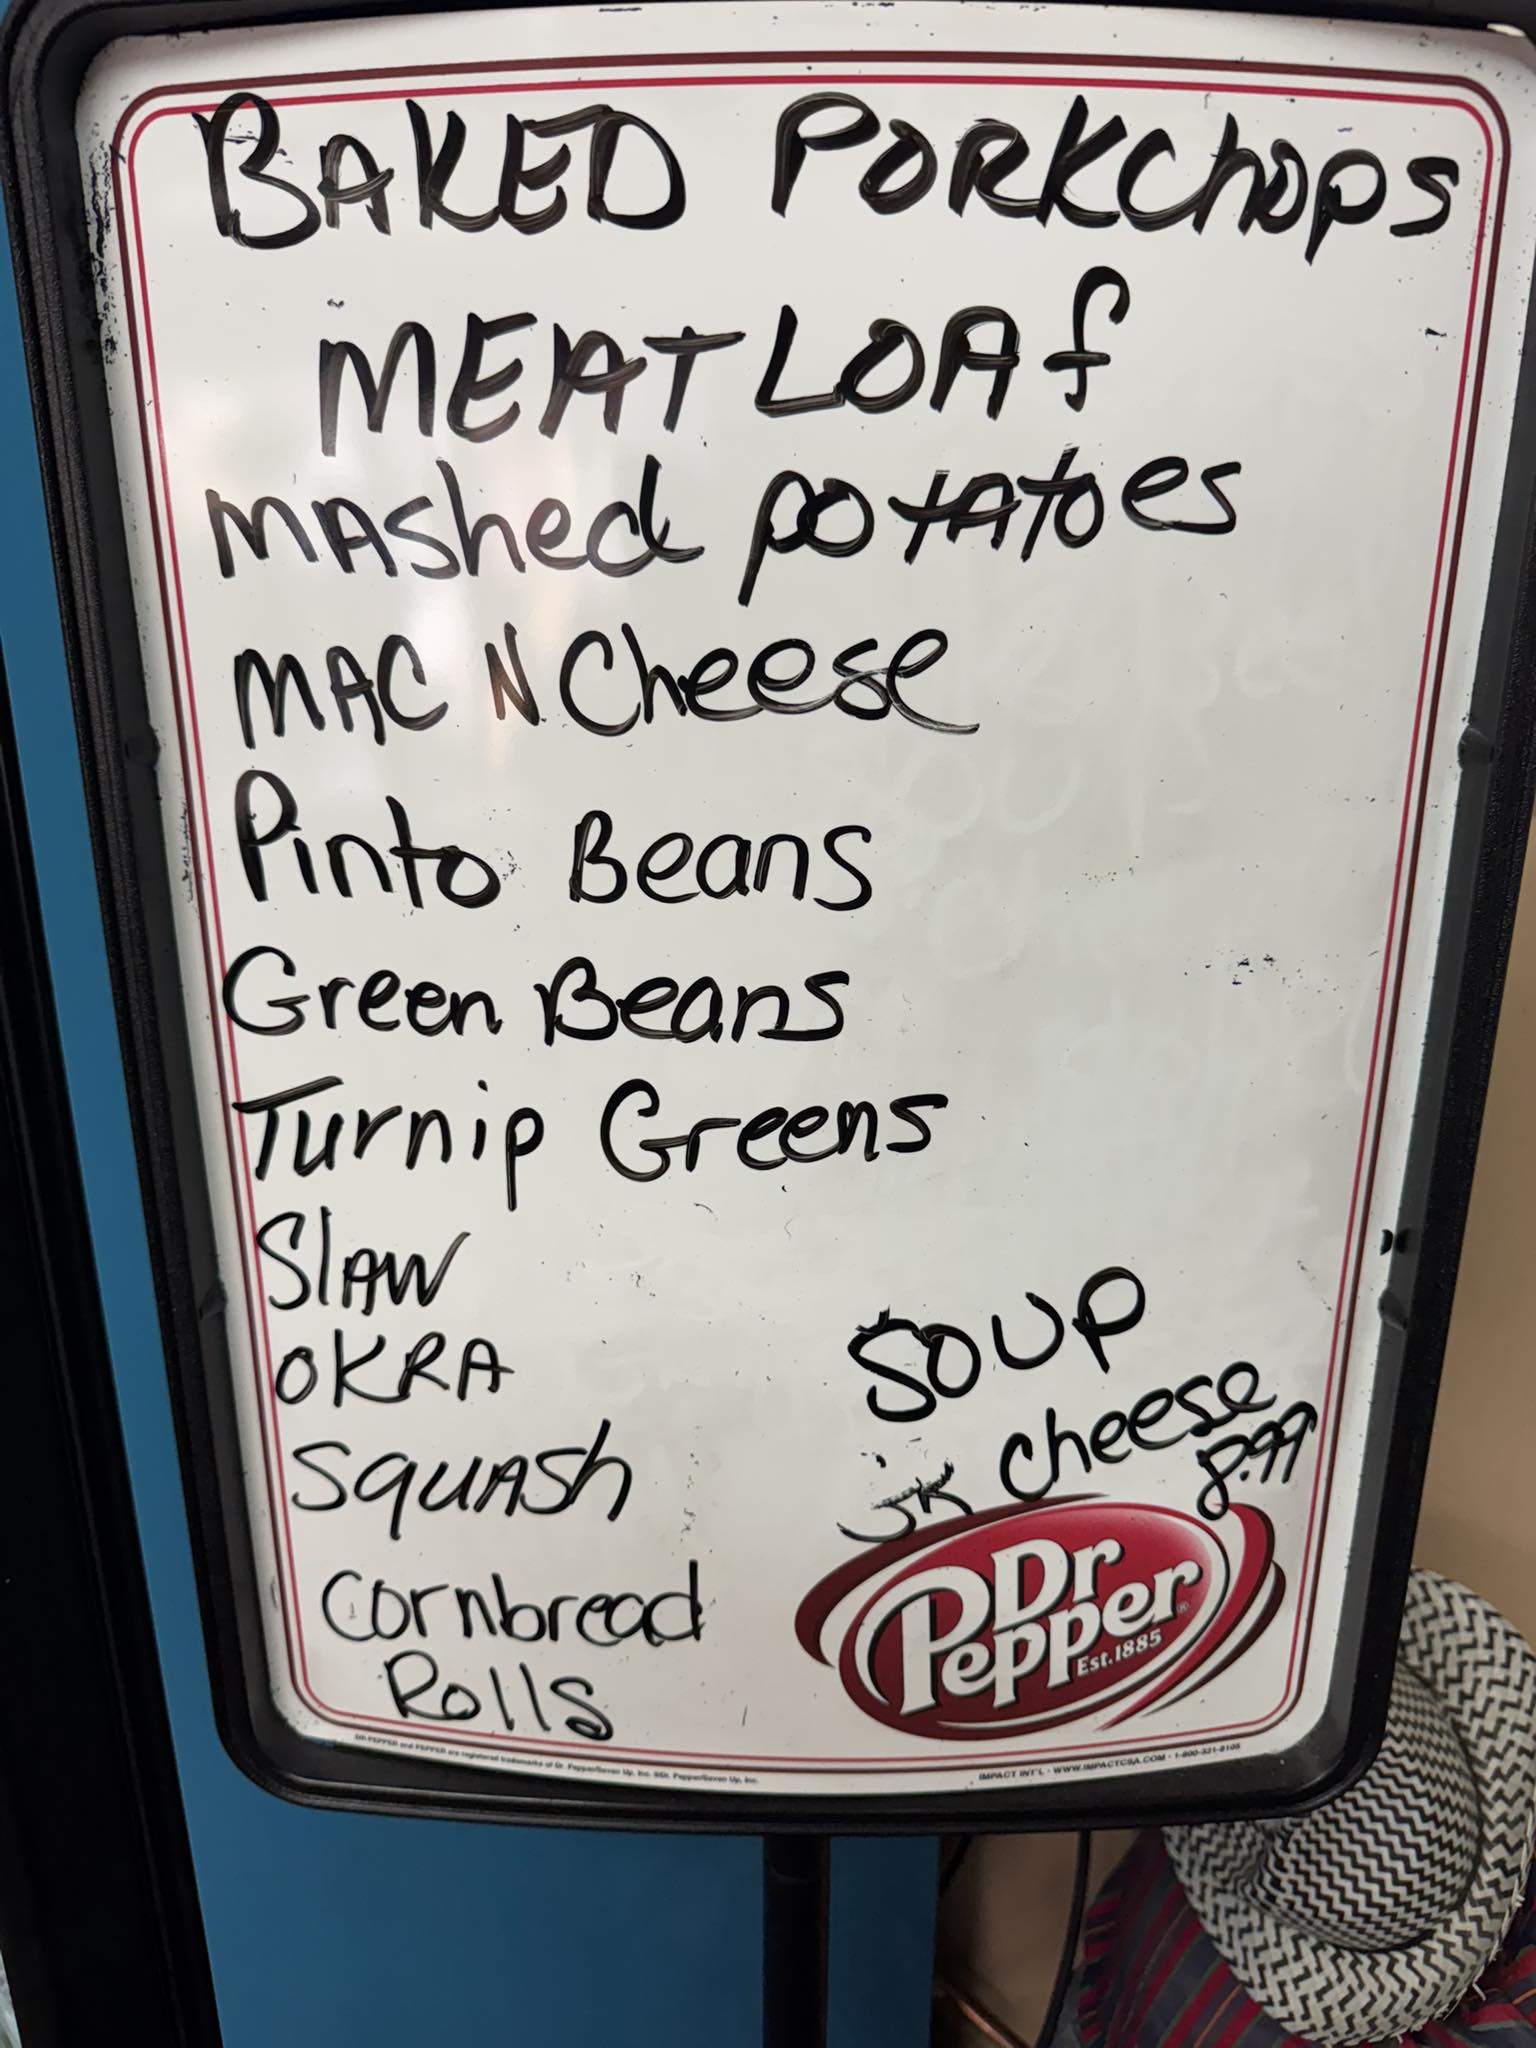 BAKED PORKChops
MEATLOAf
MAShed potAtoes
MAC N Cheese
Pinto Beans
Green Beans
Turnip Greens
SlAW
OKRA
SquASh
Cornbread
Rolls
SOUP
Cheese
8.99
Dr
Pepper
Est.1885
DR PEPPER and PEPPER are registered trademarks of Dr. Pepper/Seven Up, Inc. ©Dr. Pepper/Seven Up, Inc.
IMPACT INT'L • WWW.IMPACTCSA.COM • 1-800-321-8105